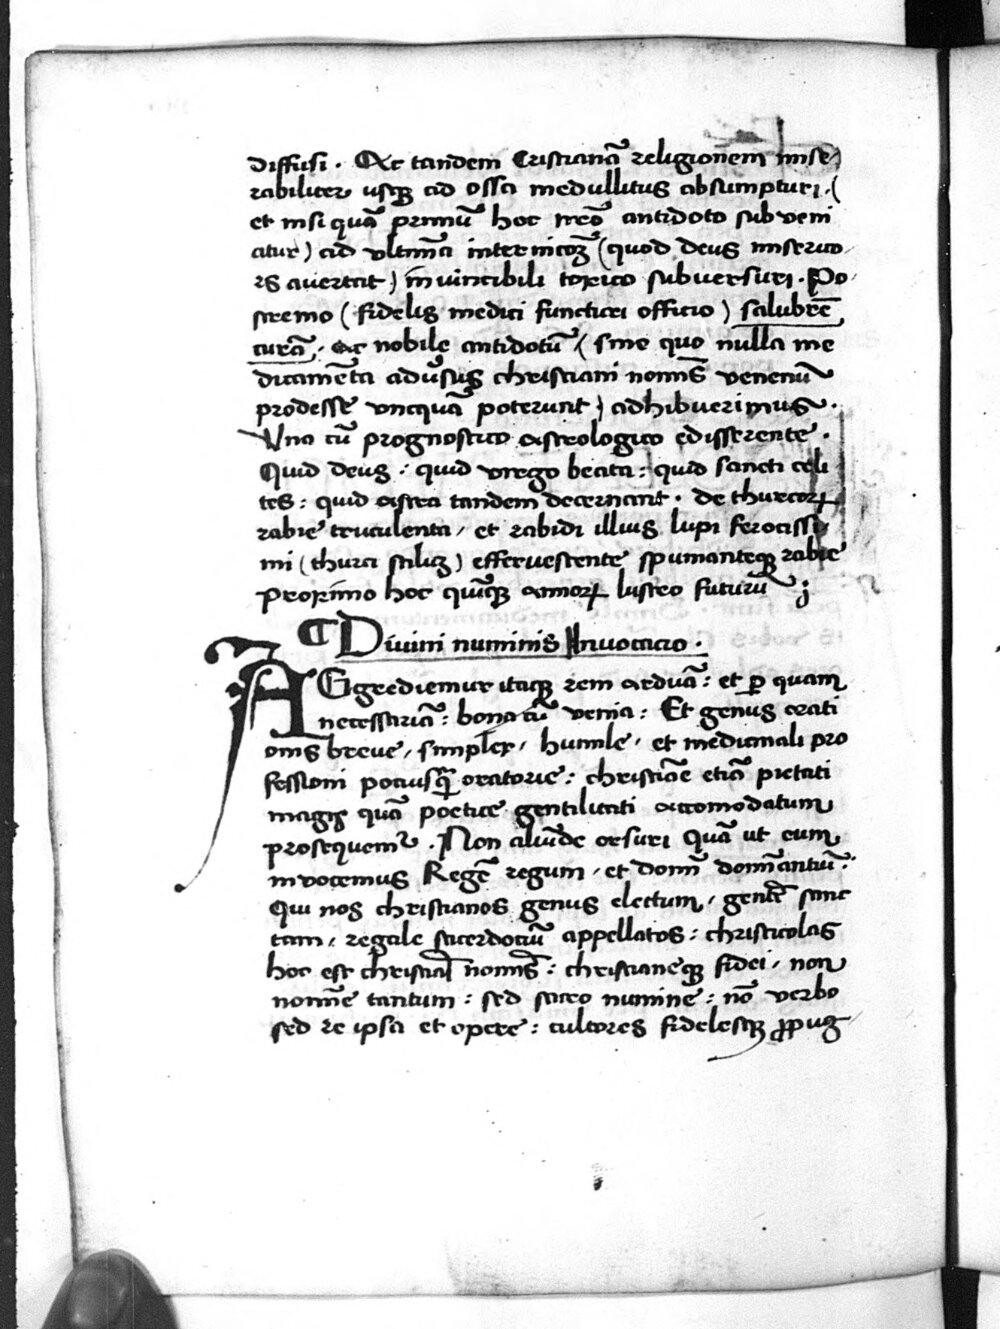 diffusi . Ac tandem Cristianā religionem mise
rabiliter usqꝫ ad ossa medullitus absumpturi . (
et nisi quā primū hoc nr̄o antidoto subveni
atur ) ad vltimā internitiōꝫ ( quod deus miserico
rs auertat ) inuincibili toxico subuersuri . Po
stremo ( fidelis medici functuri officio ) salubrē
curā . ac nobile antidotū ( sine quo nulla me
dicamēta adūsus christiani nomīs venenū
prodesse vncquā poterunt ) adhibuerimus .
Vna cū prognostico astrologico edisserente .
Quid deus : quid virgo beata : quid sancti celi
tes : quid astra tandem decernant . de thurcoꝝ
rabie truculenta / et rabidi illius lupi ferocissi
mi ( thurci scilicꝫ ) efferuescente spumanteqꝫ rabie
Proximo hoc quīqꝫ annoꝝ lustro futurū ;
¶ Diuini numinis Inuocacio .
AGgrediemur itaqꝫ rem arduā : et ꝑ quam
necessariā : bona cū venia : Et genus orati
onis breue / simplex / humile / et medicinali pro
fessioni pocius qꝫ̄ oratorie : christiāe etiā pietati
magis quā poetice gentilitati accomodatum
prosequemur . Non aliūde orsuri Quā ut eum
inuocemus Regē regum / et domī domīantiū :
Qui nos christianos genus electum / gentē sanc
tam / regale sacerdotiū appellatos : christicolas
hoc est christiāi nomīs : christianeqꝫ fidei / non
nomīe tantum : sed sacro numine : nō verbo
sed re ipsa et opere : cultores fidelesqꝫ ꝓpug